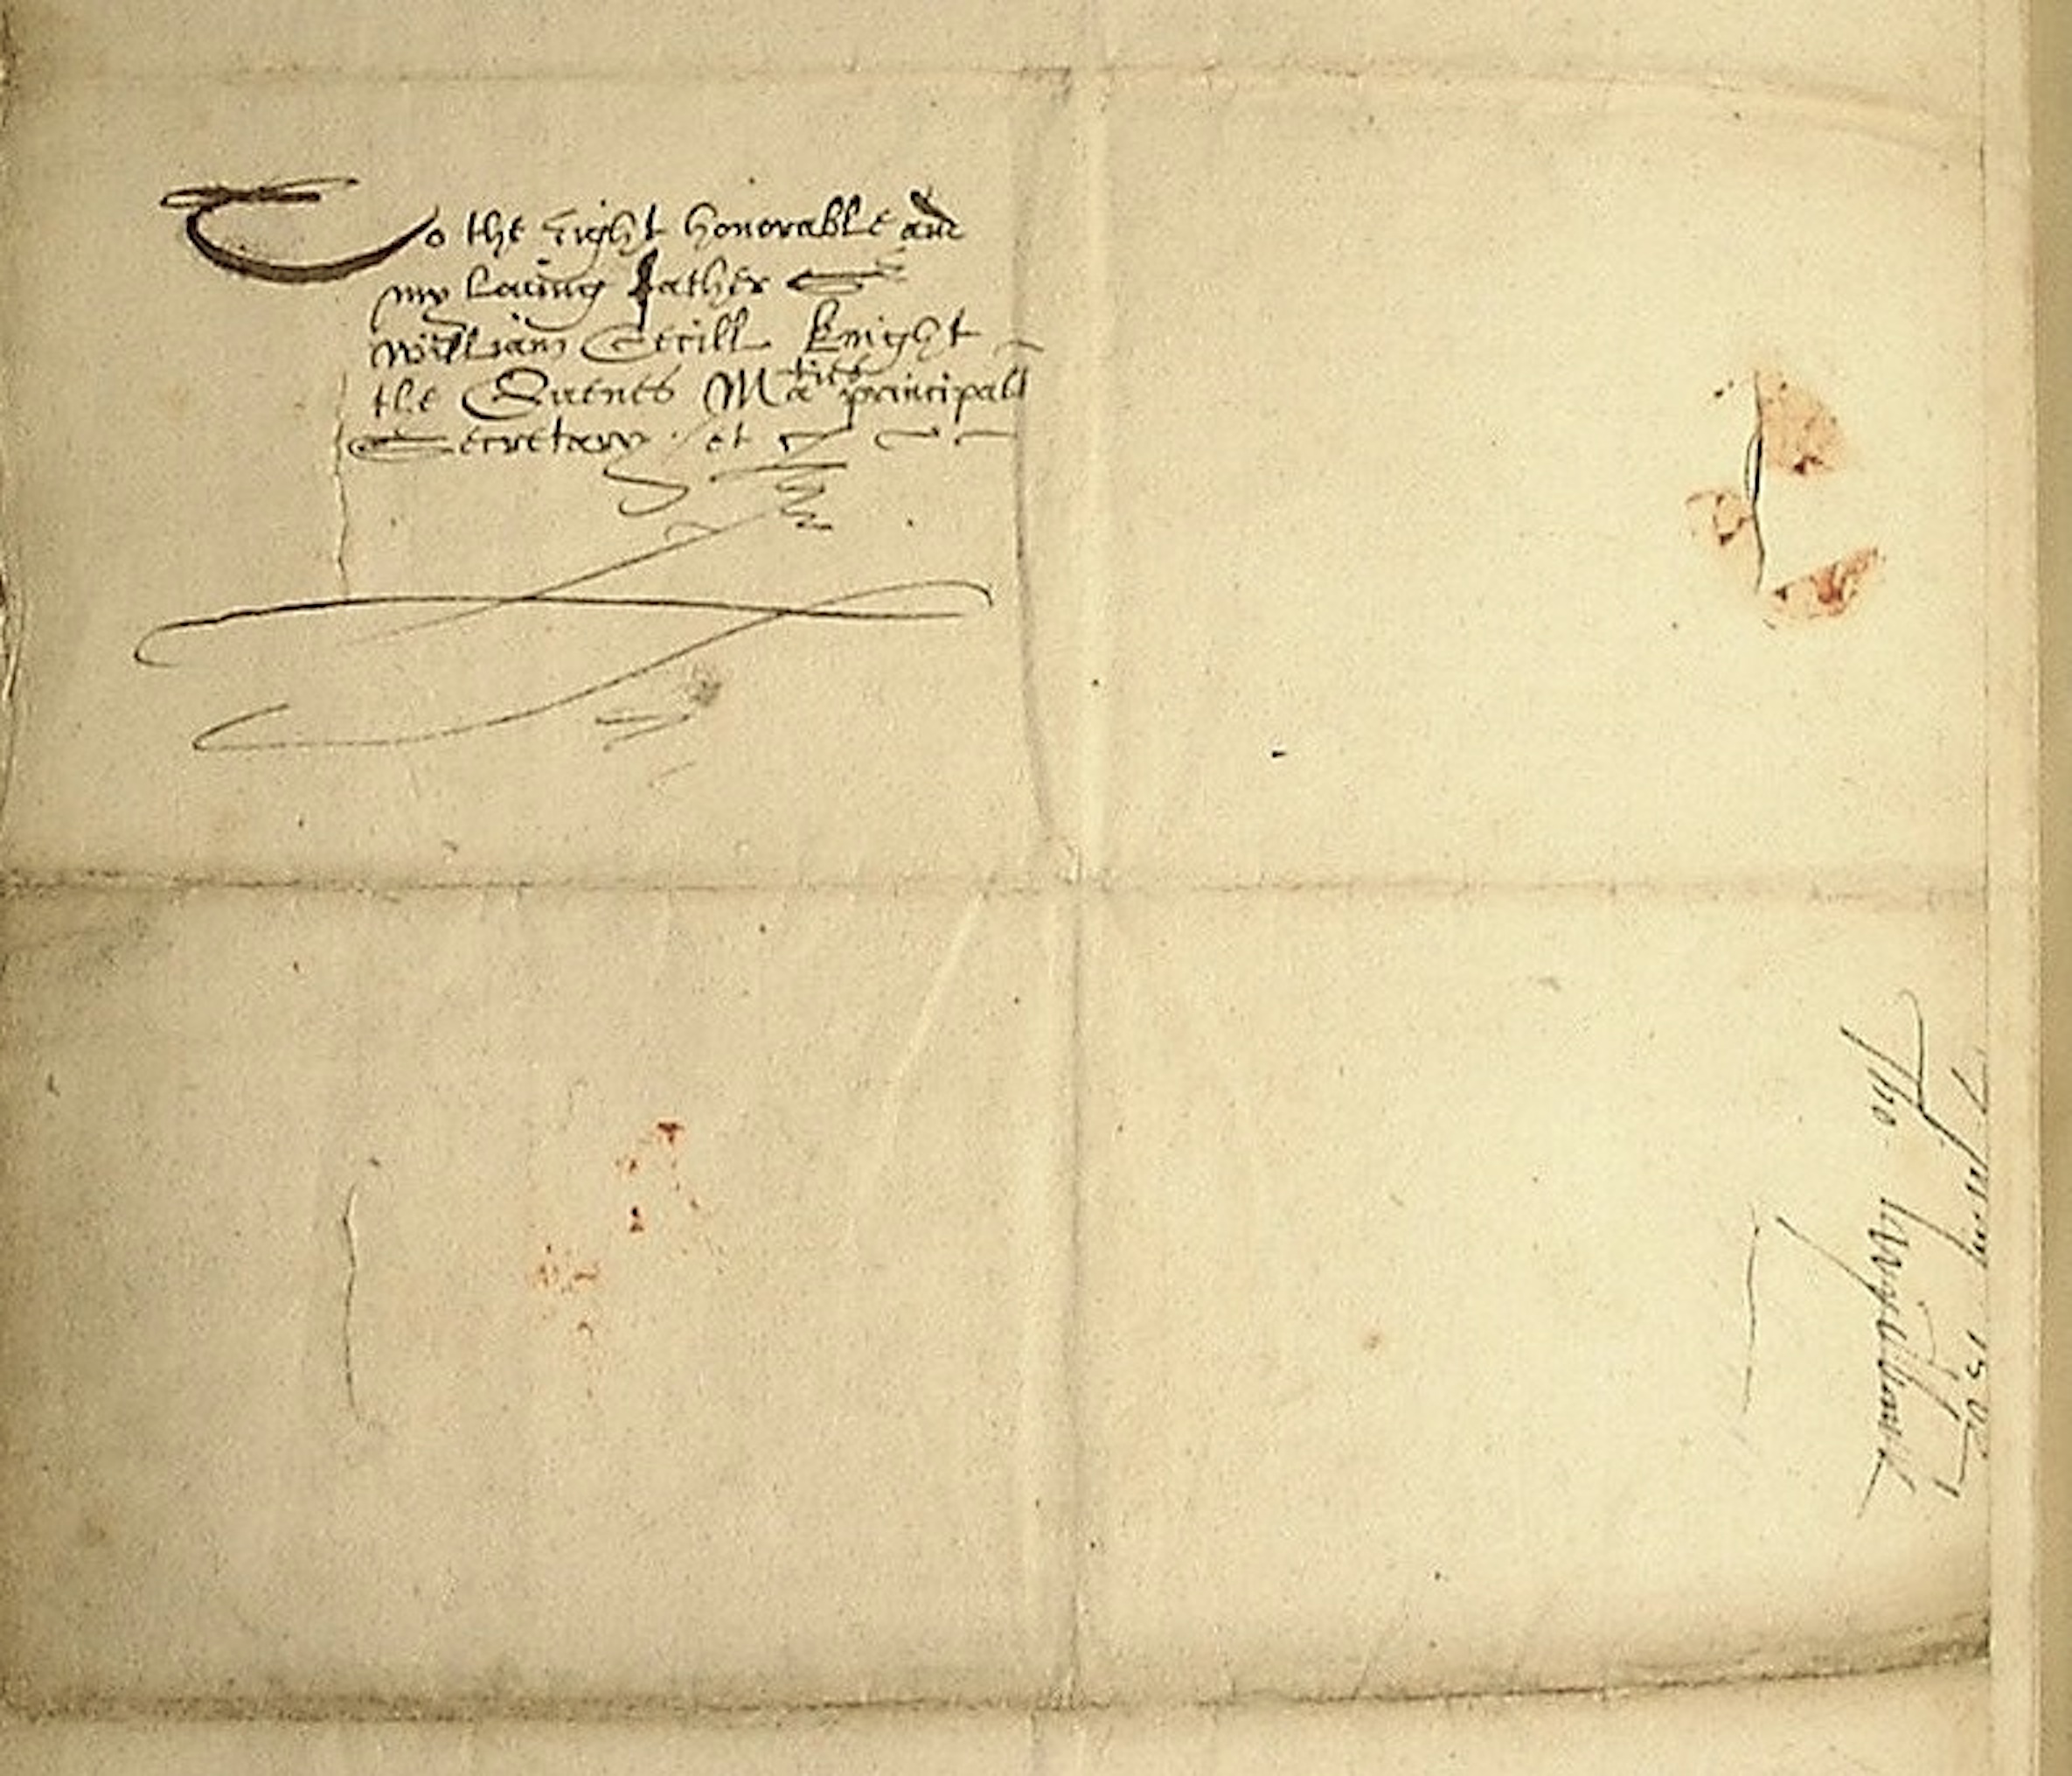 To the right honorable and
my loving father
William Cecill knight
the Quenes Maties principall
Secretary et
Tho